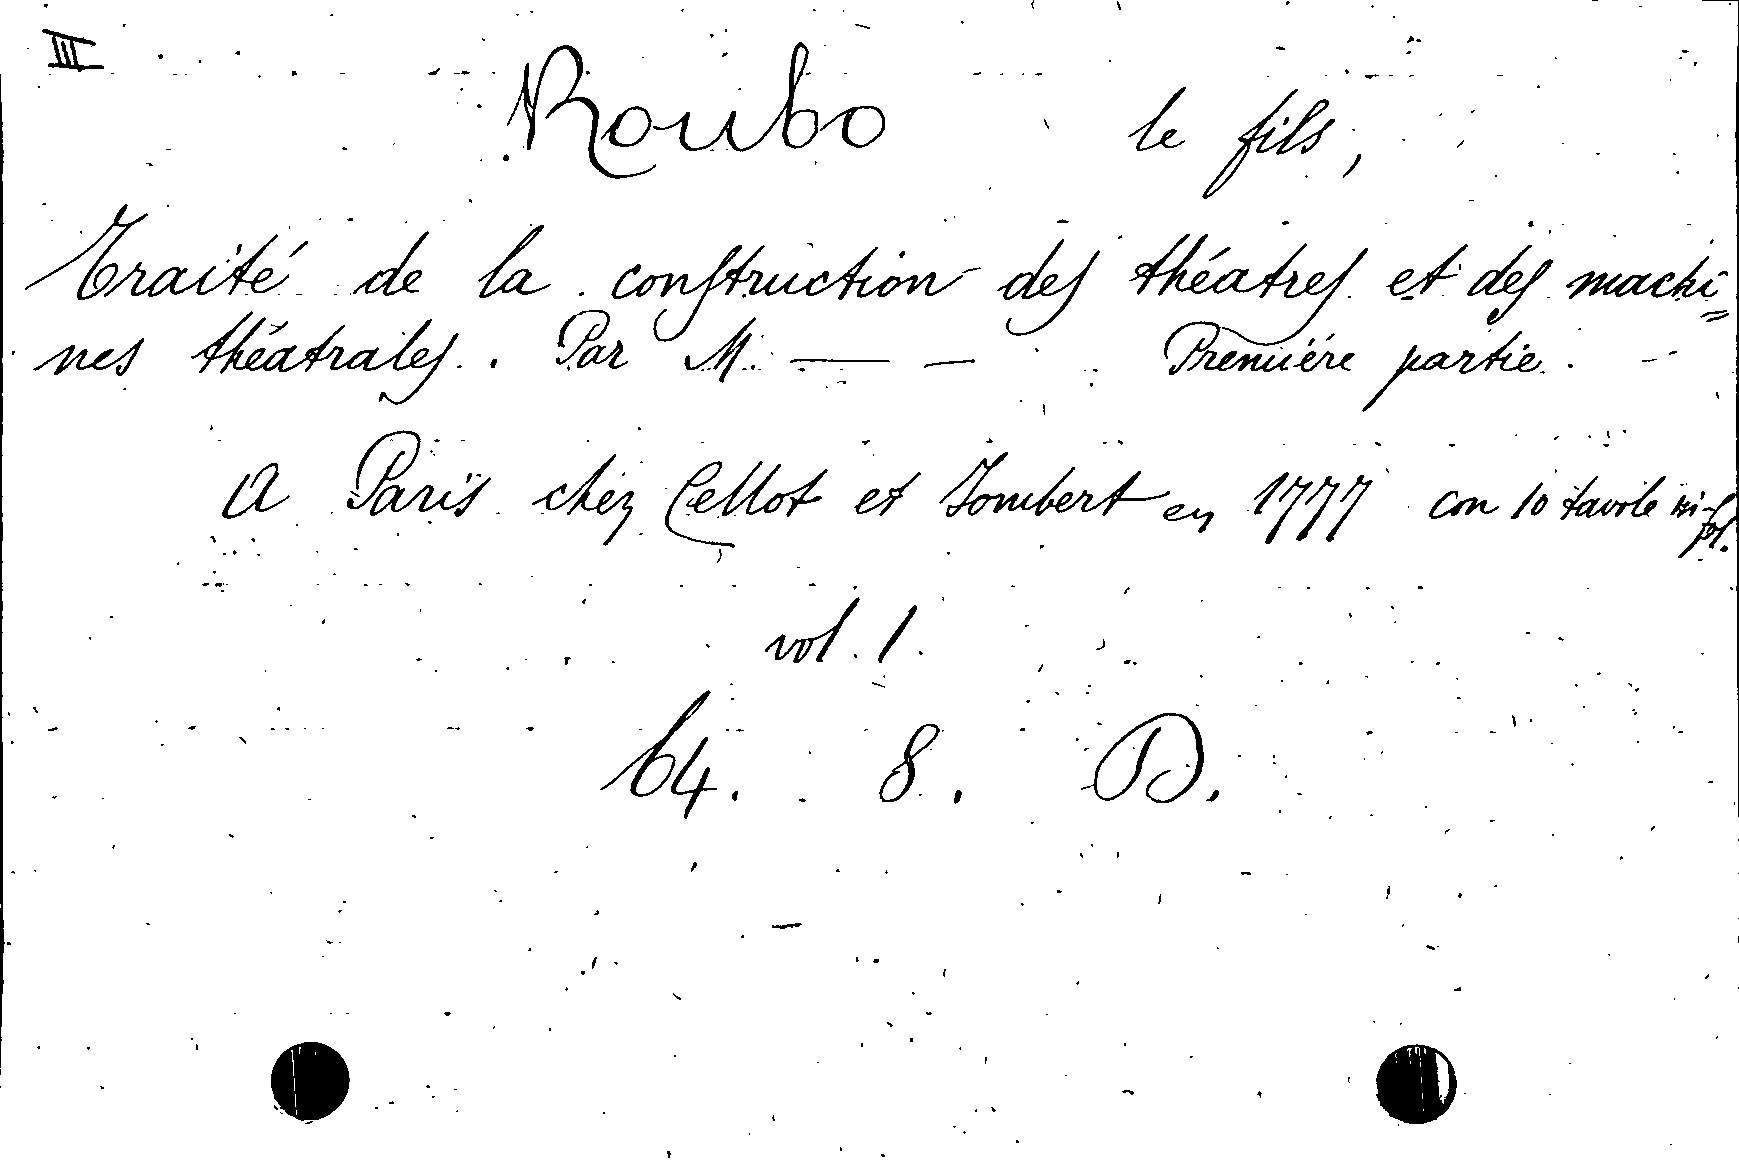 III
Roubo le fils,
Traité de la conſtruction deſ théatreſ et deſ machi=
nes théatraleſ. Par M. — — Premiére partie.
A Paris chez Cellot et Jombert en 1777 con 10 tavole in-fol.
vol. 1.
64. 8. D.